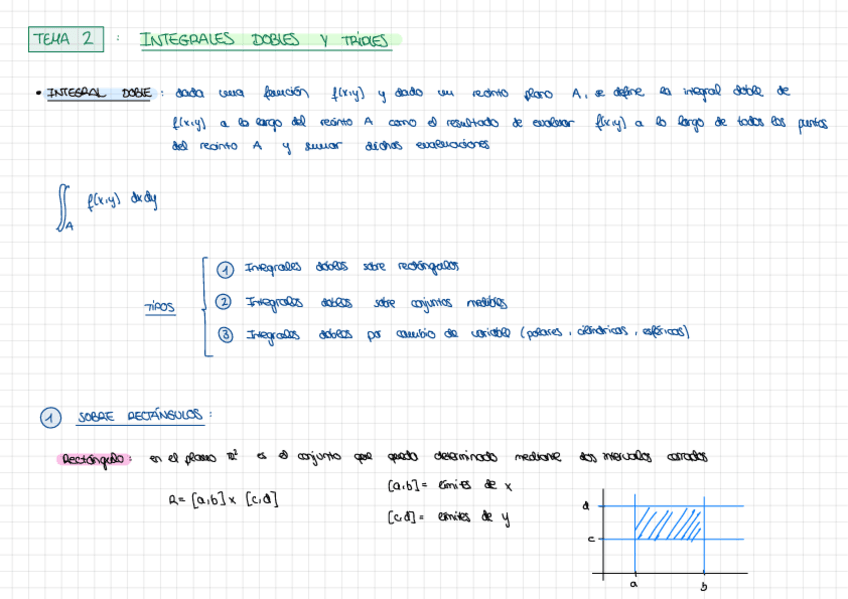 TEMA 2 : INTEGRALES DOBLES Y TRIPLES
• INTEGRAL DOBLE : dada una función f(x,y) y dado un recinto plano A, se define la integral doble de
f(x,y) a lo largo del recinto A como el resultado de evaluar f(x,y) a lo largo de todos los puntos
del recinto A y sumar dichas evaluaciones
∬_A f(x,y) dxdy
TIPOS
① Integrales dobles sobre rectángulos
② Integrales dobles sobre conjuntos medibles
③ Integrales dobles por cambio de variable (polares, cilíndricas, esféricas)
① SOBRE RECTÁNGULOS :
Rectángulo: en el plano ℝ² es el conjunto que queda determinado mediante dos intervalos cerrados
R = [a,b] x [c,d]
[a,b] = límites de x
[c,d] = límites de y
d
c
a b